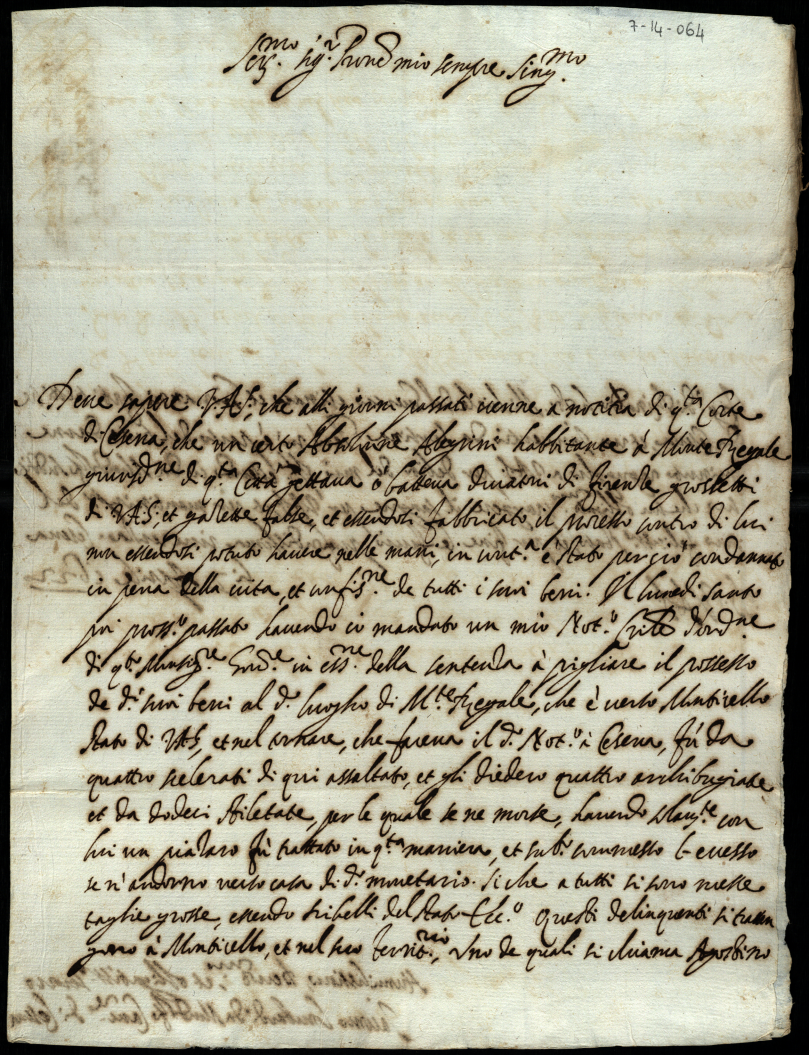 7-14-064
Ser.mo Sig.r Prone mio sempre Sing.mo
Deve sapere V.A.S., che alli giorni passati venne a notitia di q.ta Corte
di Cesena, che un certo Abrahme Alegrini habbitante à Monte Regale
giurisd.ne di q.ta Città gettava ò batteva di firenze grossetti
di V.A.S. et gazette false, et essendosi fabbricato il processo contro di lui
non essendosi potuto havere nelle mani, in cont.a è stato perciò condannato
in pena della vita, et confis.ne de tutti i suoi beni. Il lunedi santo
poi pross.o passato havendo io mandato un mio Not.o d'ord.ne
di q.to Monsig.re in ess.ne della sentenza à pigliare il possesso
de d.i suoi beni al d.o luogho di M.te Regale, che è verso Monticello
stato di V.A.S., et nel tornare, che faceva il d.o Not.o à Cesena, fù da
quattro scelerati di qui assaltato, et gli diedero quattro archibugiate
et da dodeci stiletate, per le quale se ne morse, havendo con
lui un fù trattato in q.ta maniera, et sub.o commesso l'ecesso
se n'andorno verso casa di d.o monetario. Si che a tutti si sono messe
taglie grosse, essendo ribelli del stato Ecc.o Questi delinquenti si tratten
gono à Monticello, et nel suo territ.rio, Uno de quali si chiama Agostino